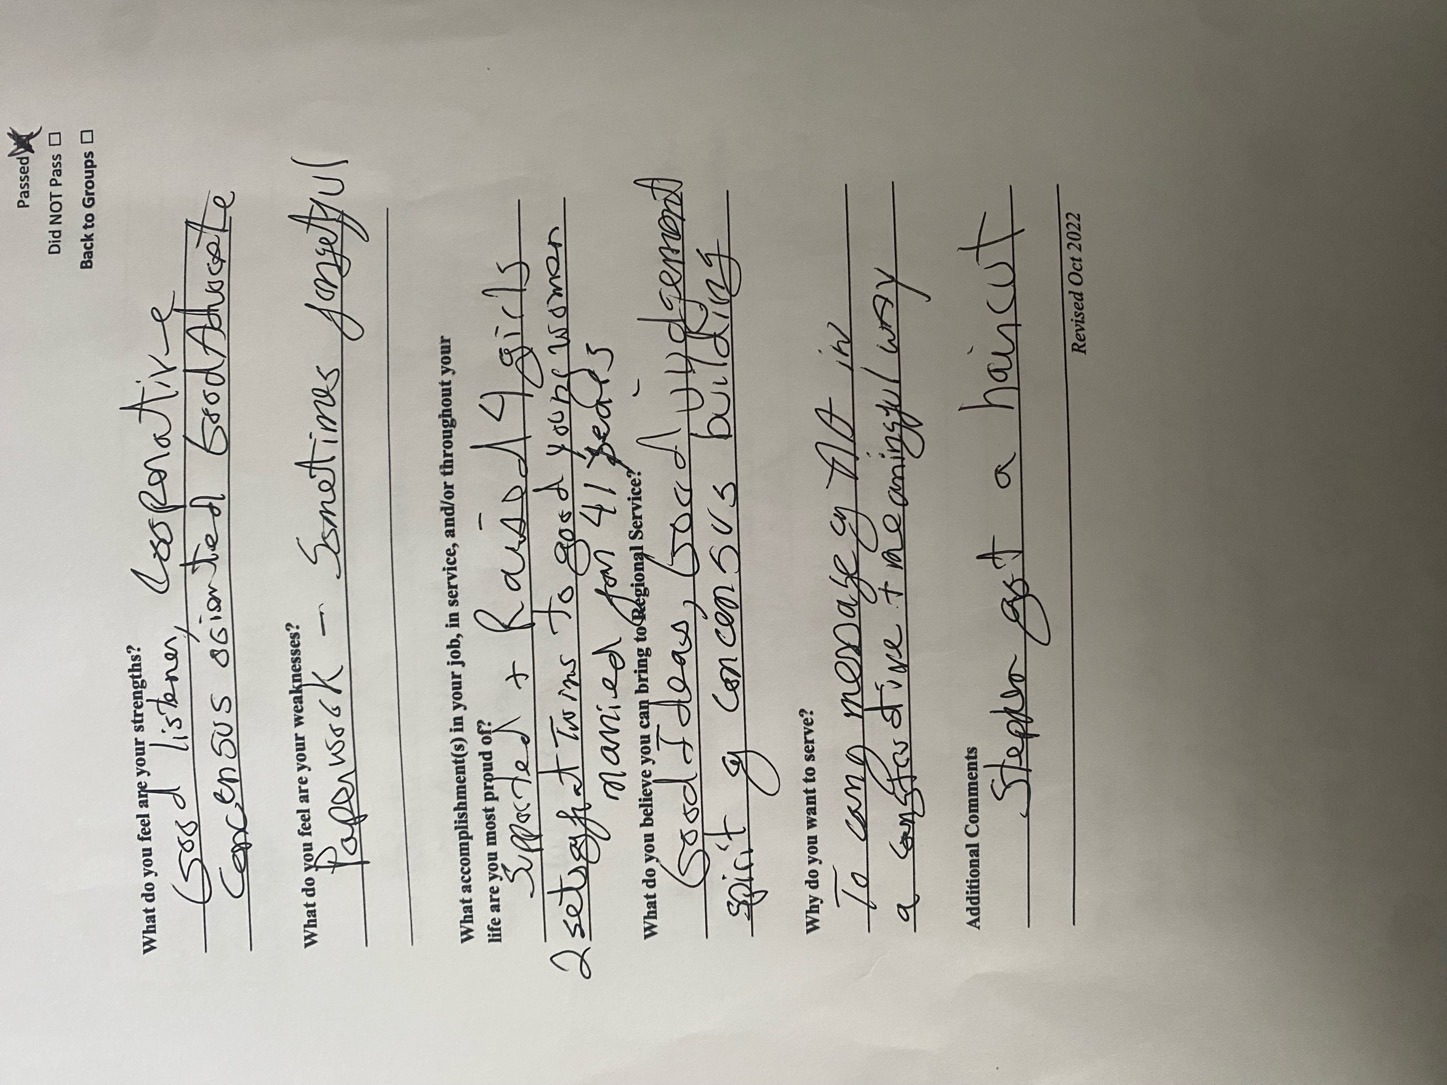 Passed ☒
Did NOT Pass ☐
Back to Groups ☐
What do you feel are your strengths?
Good listener, Cooperative
Concensus oriented Good Advocate
What do you feel are your weaknesses?
Paperwork - Sometimes forgetful
What accomplishment(s) in your job, in service, and/or throughout your
life are you most proud of?
Supported + Raised 4 girls
2 sets of Twins to good young women
married for 41 years
What do you believe you can bring to Regional Service?
Good Ideas, Good Judgement
spirit of concensus building
Why do you want to serve?
To carry message of NA in
a constructive + meaningful way
Additional Comments
got a haircut
Revised Oct 2022